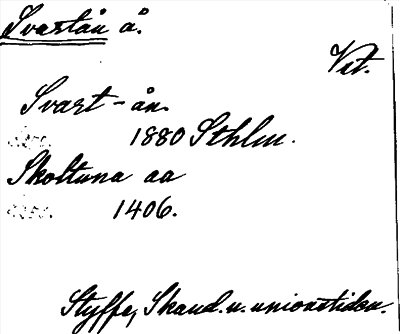 Svartån å.
Vst.
Svart-ån.
1880 Sthlm.
Skoltuna aa
1406.
Styffe, Skand. u. unionstiden.